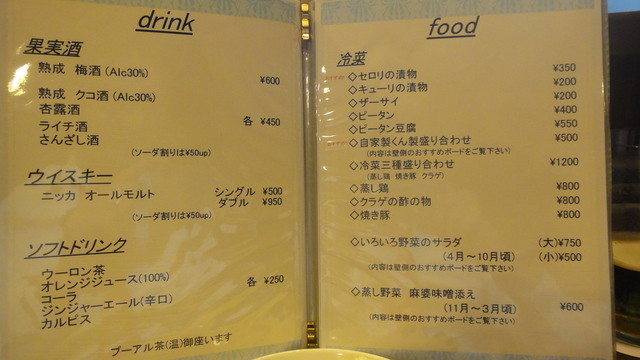 drink
果実酒
熟成 梅酒 (Alc30%) ¥600
熟成 クコ酒 (Alc30%)
杏露酒
ライチ酒 各 ¥450
さんざし酒
(ソーダ割りは¥50up)
ウイスキー
ニッカ オールモルト シングル ¥500
ダブル ¥950
(ソーダ割りは¥50up)
ソフトドリンク
ウーロン茶
オレンジジュース(100%) 各 ¥250
コーラ
ジンジャーエール(辛口)
カルピス
プーアル茶(温)御座います
food
冷菜
◇セロリの漬物 ¥350
◇キューリの漬物 ¥200
◇ザーサイ ¥200
◇ピータン ¥400
◇ピータン豆腐 ¥550
◇自家製くん製盛り合わせ ¥500
(内容は壁側のおすすめボードをご覧下さい)
◇冷菜三種盛り合わせ ¥1200
(蒸し鶏 焼き豚 クラゲ)
◇蒸し鶏 ¥800
◇クラゲの酢の物 ¥800
◇焼き豚 ¥800
◇いろいろ野菜のサラダ (大)¥750
(4月～10月頃) (小)¥500
(内容は壁側のおすすめボードをご覧下さい)
◇蒸し野菜 麻婆味噌添え
(11月～3月頃) ¥600
(内容は壁側のおすすめボードをご覧下さい)